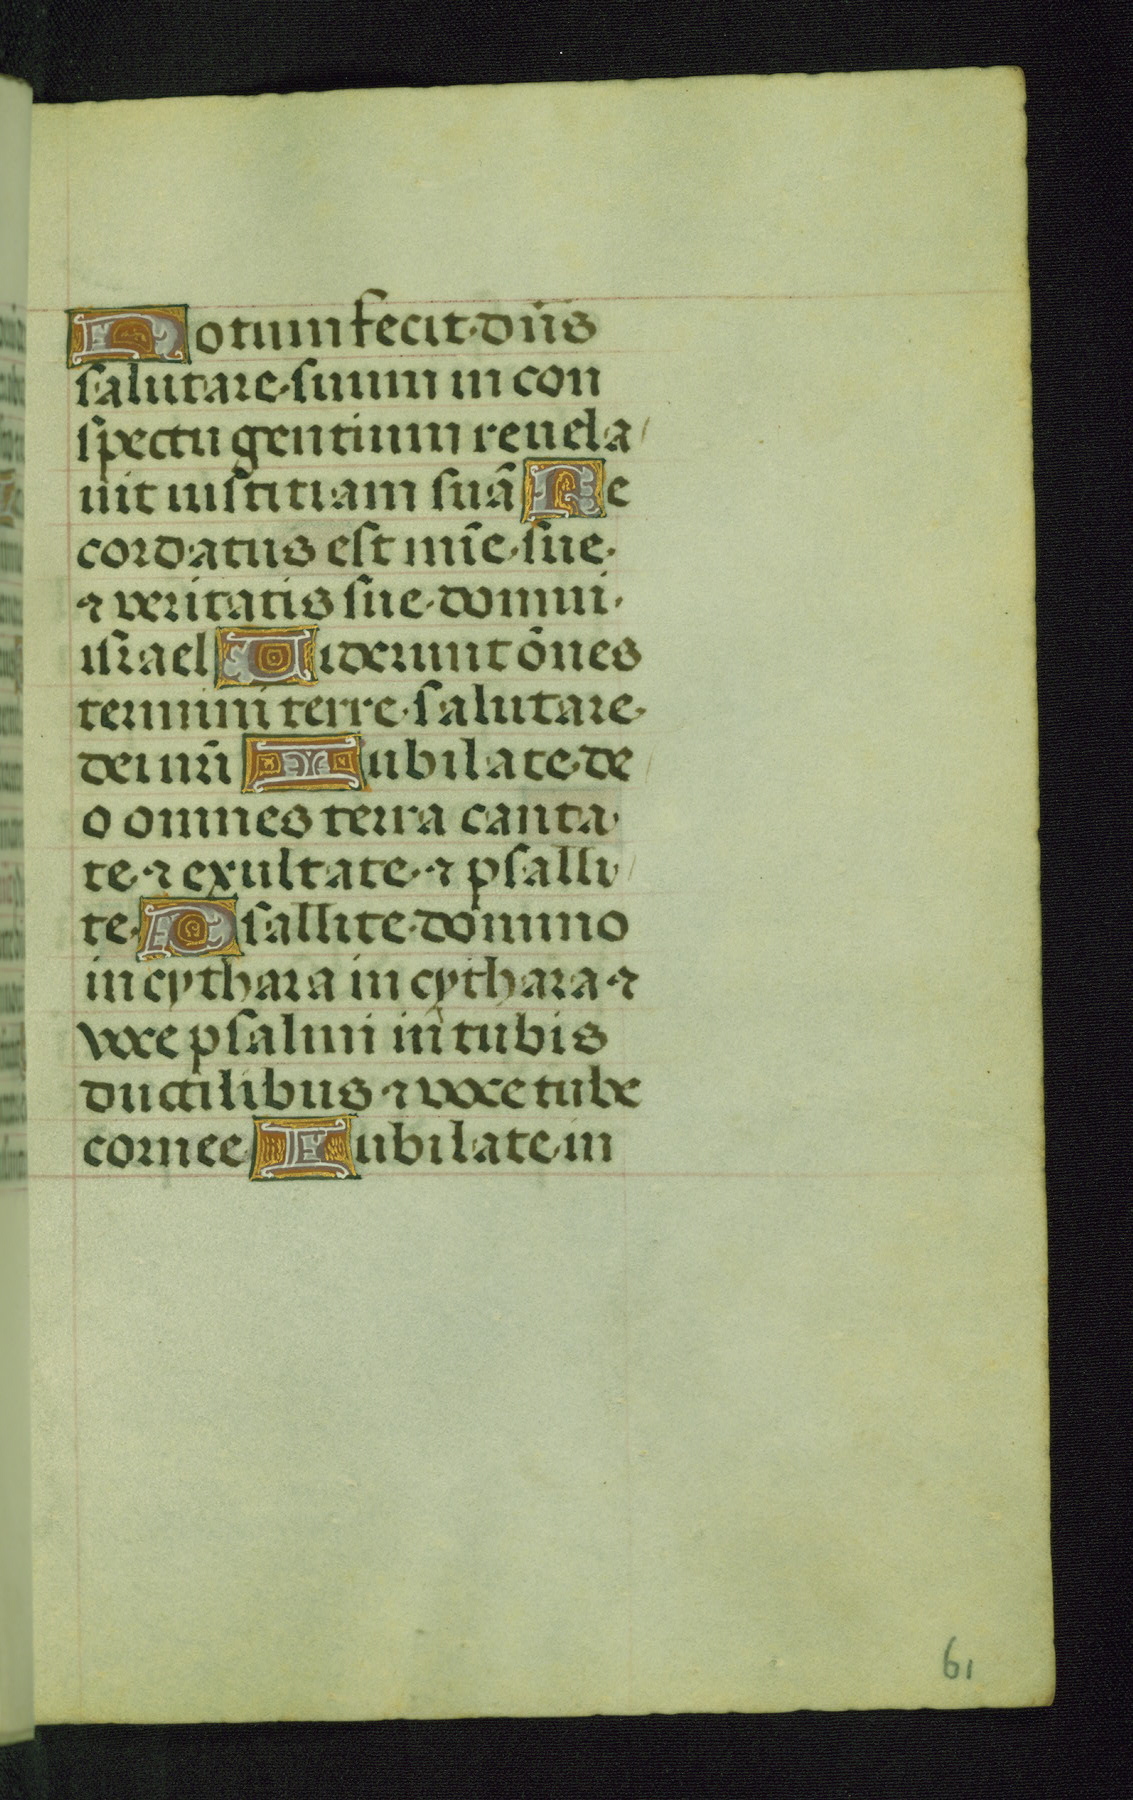 Notum fecit dn̄s
salutare suum in con
spectu gentium reuela
uit iustitiam suā Re
cordatus est mīe sue
⁊ veritatis sue domui
israel Uiderunt ōnes
termini terre salutare
dei nr̄i Iubilate de
o omnes terra canta
te ⁊ exultate ⁊ psalli
te Psallite domino
in cythara in cythara ⁊
voce psalmi in tubis
ductilibus ⁊ voce tube
cornee Iubilate in
61